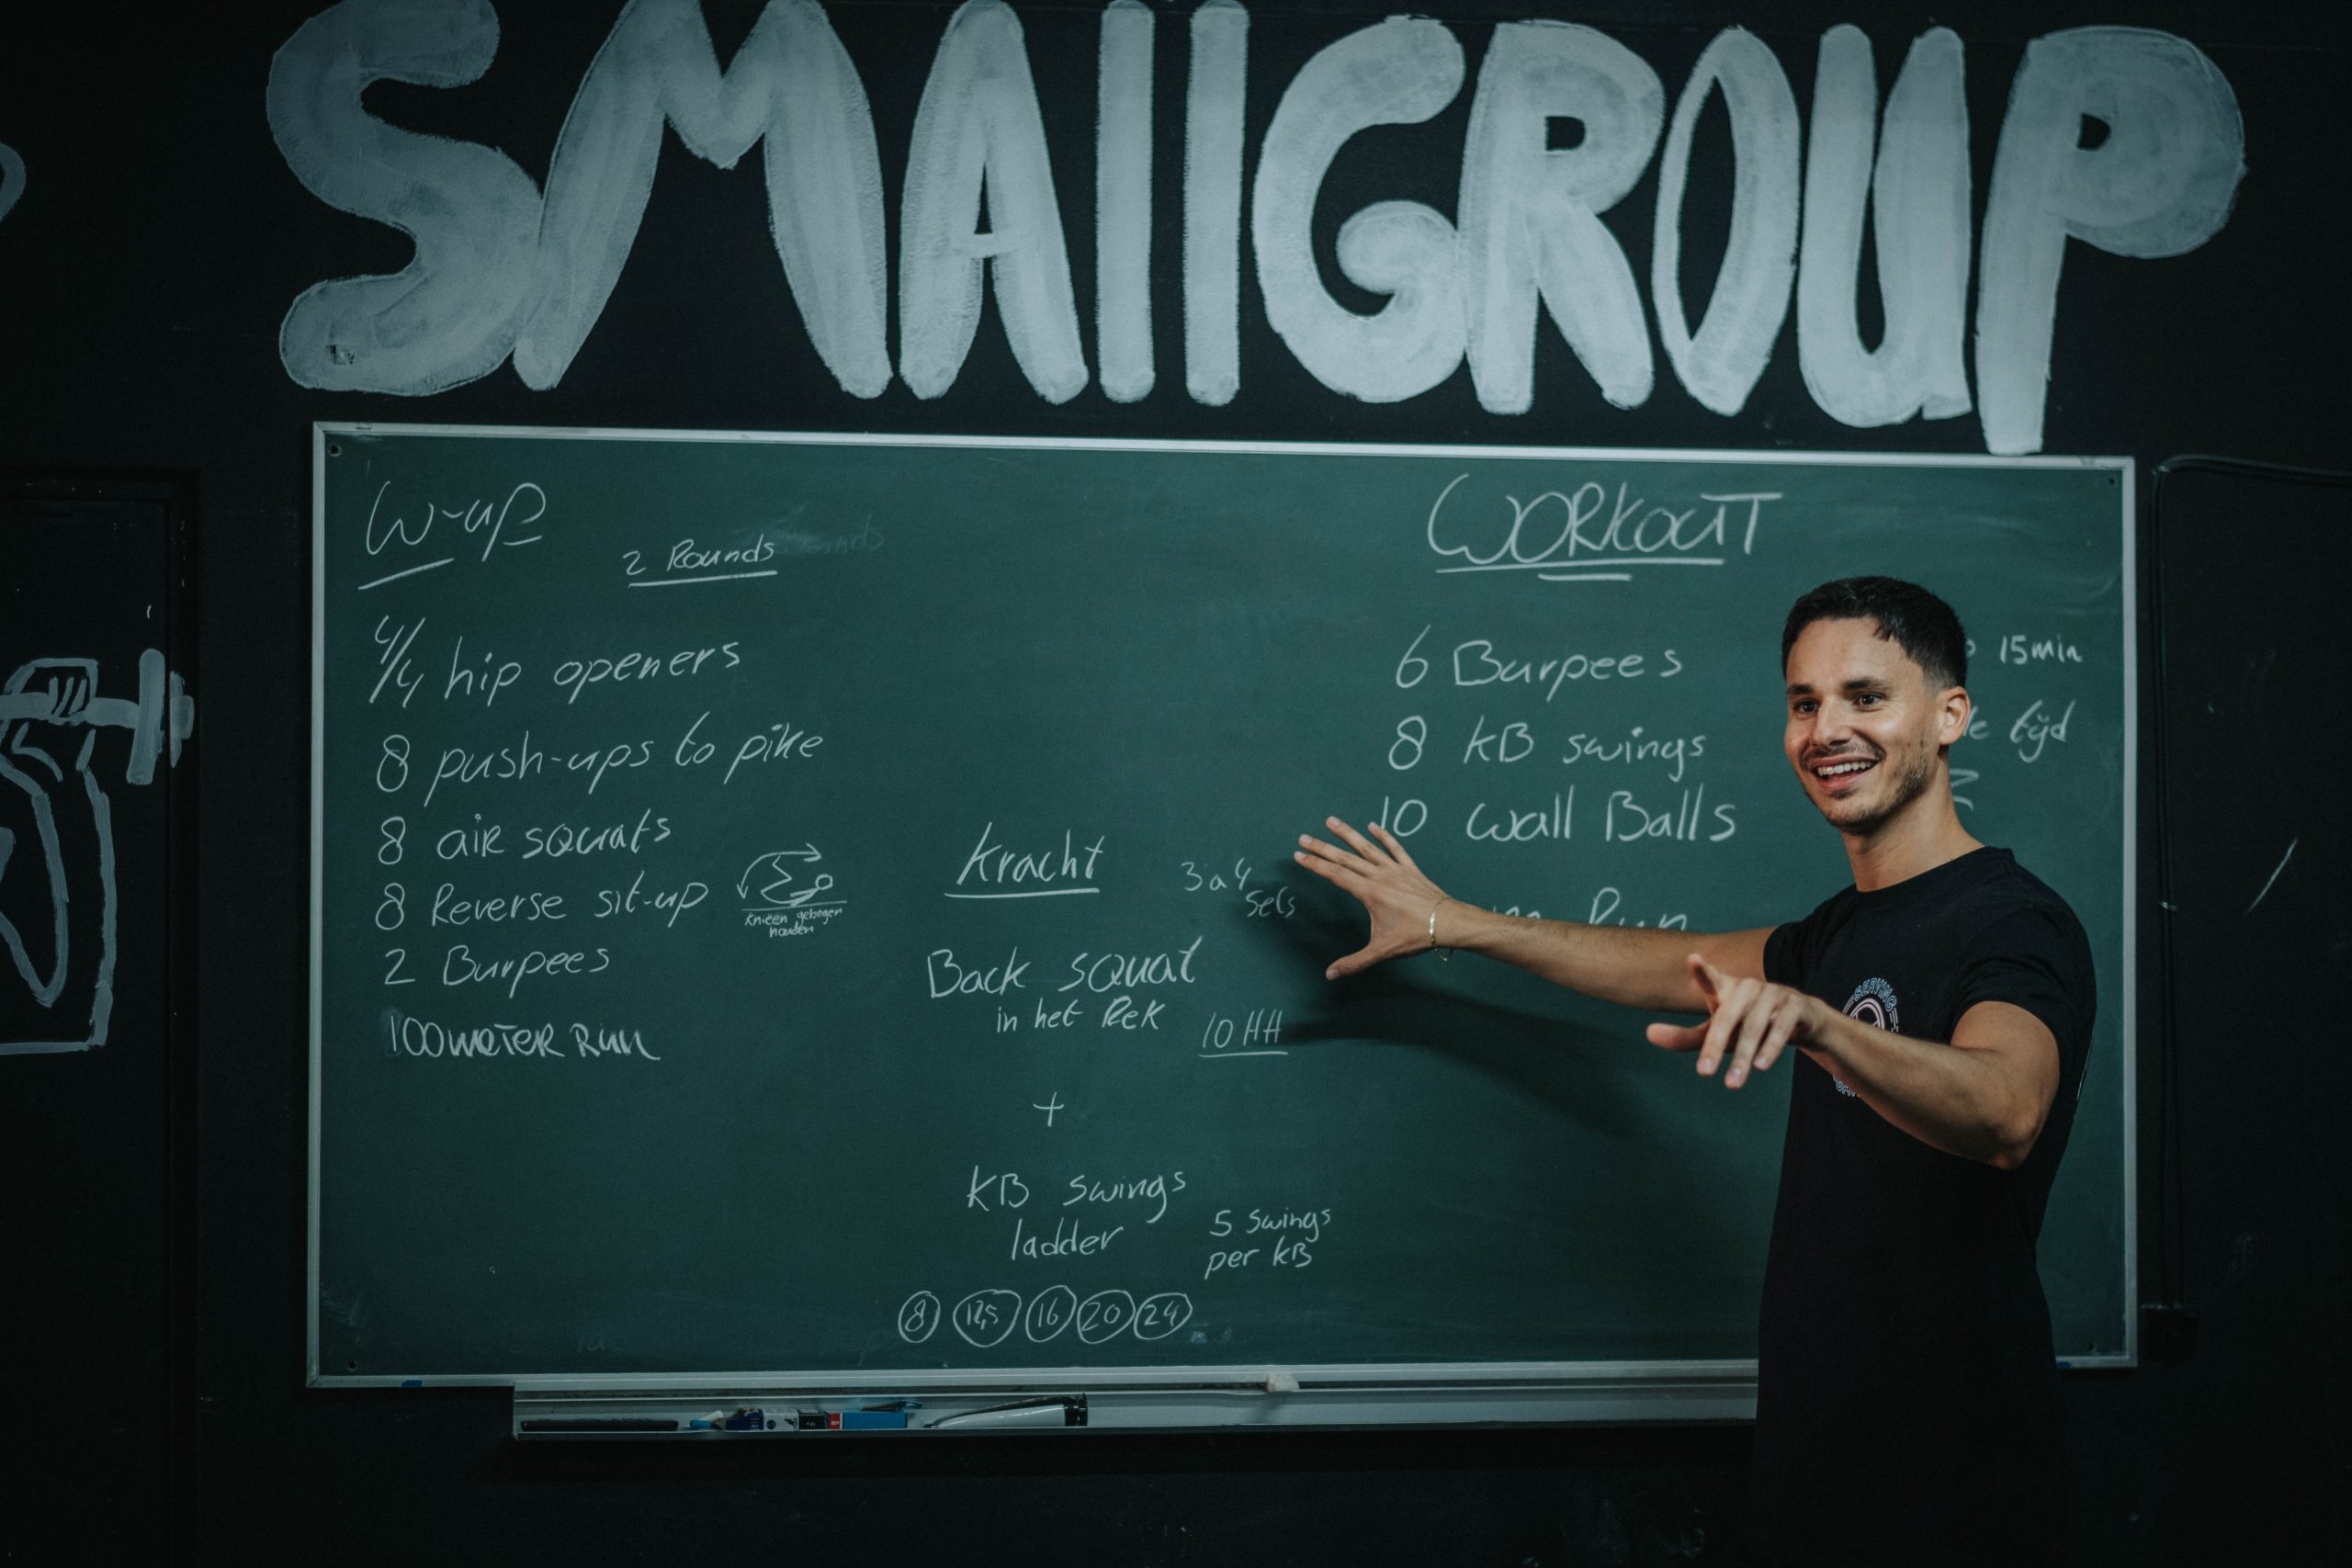 SMAllGROUP
W-up
2 Rounds
4/4 hip openers
8 push-ups to pike
8 air squats
8 Reverse sit-up
Knieën gebogen
houden
2 Burpees
100 meter Run
Kracht
3 a 4
sets
Back squat
in het Rek
10 HH
+
KB swings
ladder
5 swings
per KB
8 12,5 16 20 24
WORKOUT
6 Burpees
15min
8 KB swings
tijd
10 Wall Balls
Run
SERVING